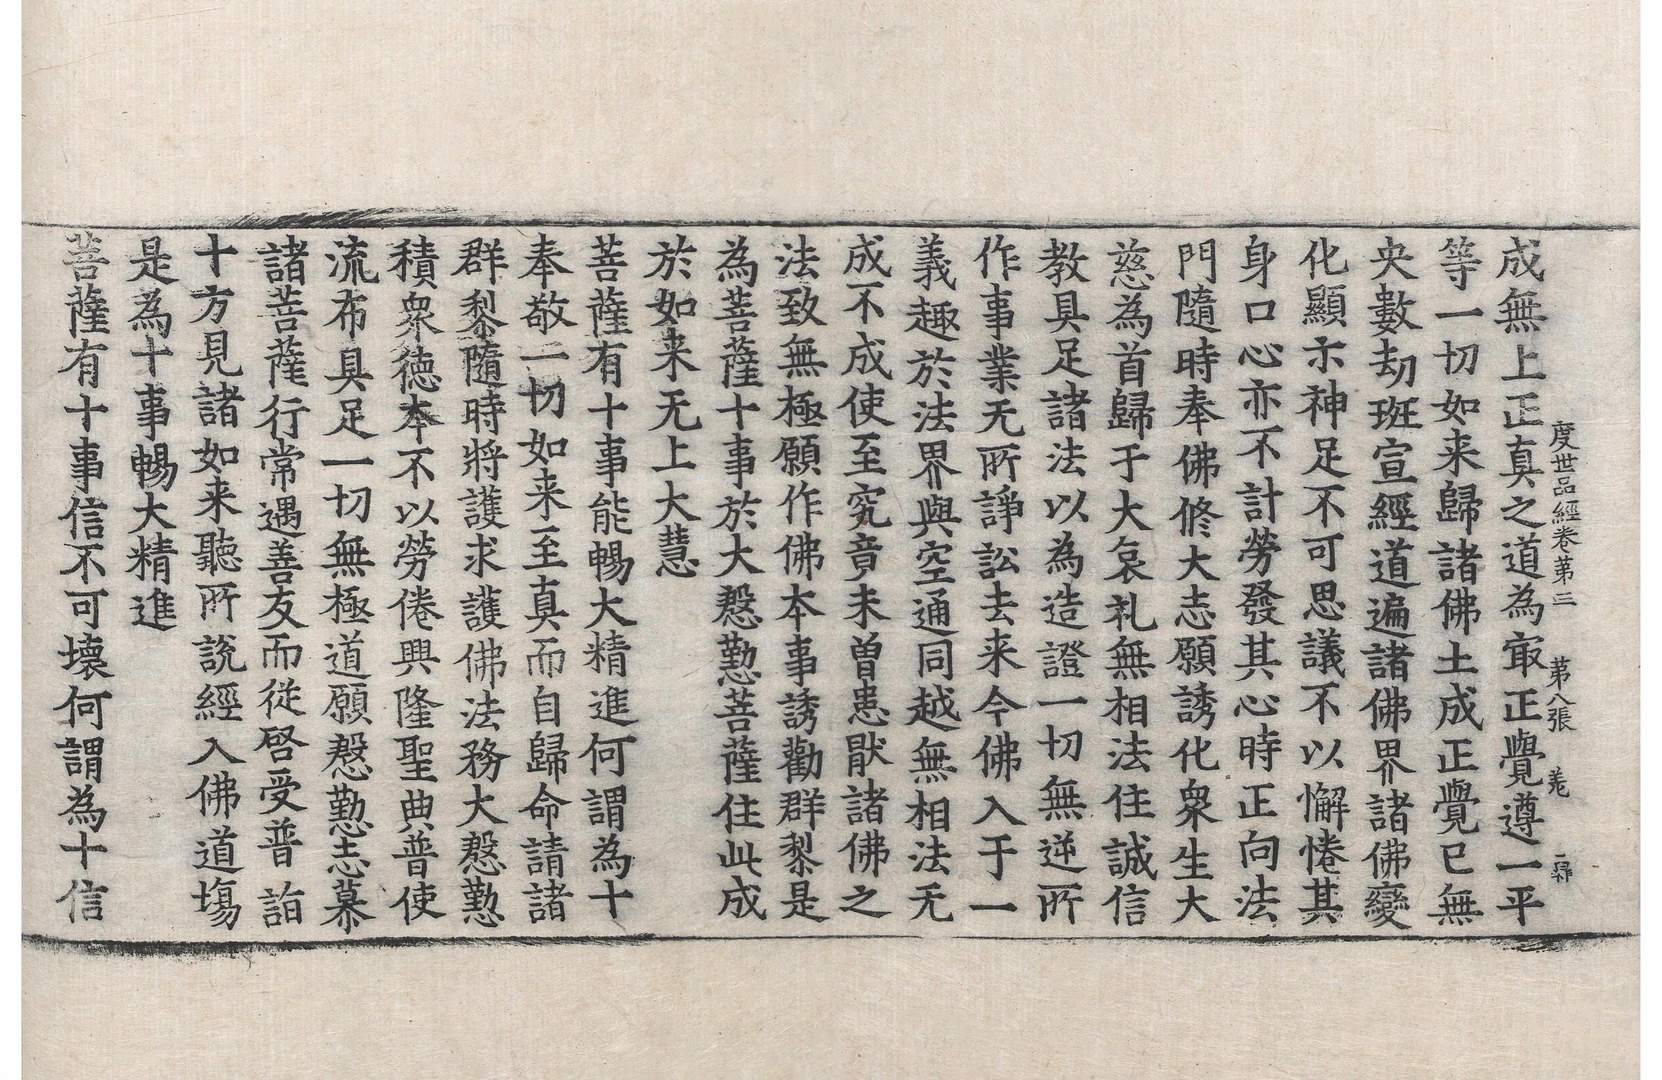 成無上正真之道為㝡正覺遵一平
度世品經卷第三　第八張　羗
等一切如来歸諸佛土成正覺已無
央數劫班宣經道遍諸佛界諸佛變
化顯示神足不可思議不以懈惓其
身口心亦不計勞發其心時正向法
門隨時奉佛修大志願誘化衆生大
慈為首歸于大哀礼無相法住誠信
教具足諸法以為造證一切無逆所
作事業无所諍訟去来今佛入于一
義趣於法界與空通同越無相法无
成不成使至究竟未曾患猒諸佛之
法致無極願作佛本事誘勸群黎是
為菩薩十事於大慇懃菩薩住此成
於如来无上大慧
菩薩有十事能暢大精進何謂為十
奉敬一切如来至真而自歸命請諸
群黎隨時將護求護佛法務大慇懃
積衆德本不以勞倦興隆聖典普使
流布具足一切無極道願慇懃志慕
諸菩薩行常遇善友而從啓受普詣
十方見諸如来聽所說經入佛道塲
是為十事暢大精進
菩薩有十事信不可壞何謂為十信